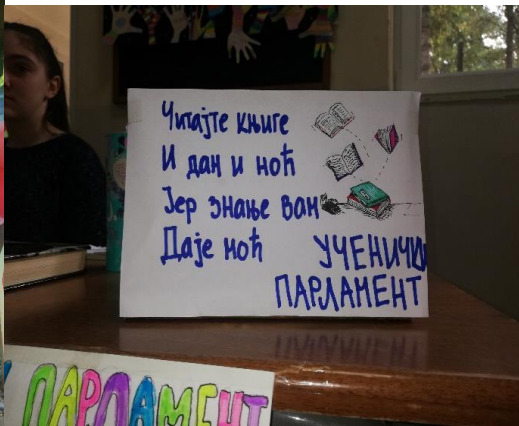 Читајте књиге
И дан и ноћ
Јер знање вам
Даје моћ
УЧЕНИЧКИ
ПАРЛАМЕНТ
ПАРЛАМЕНТ